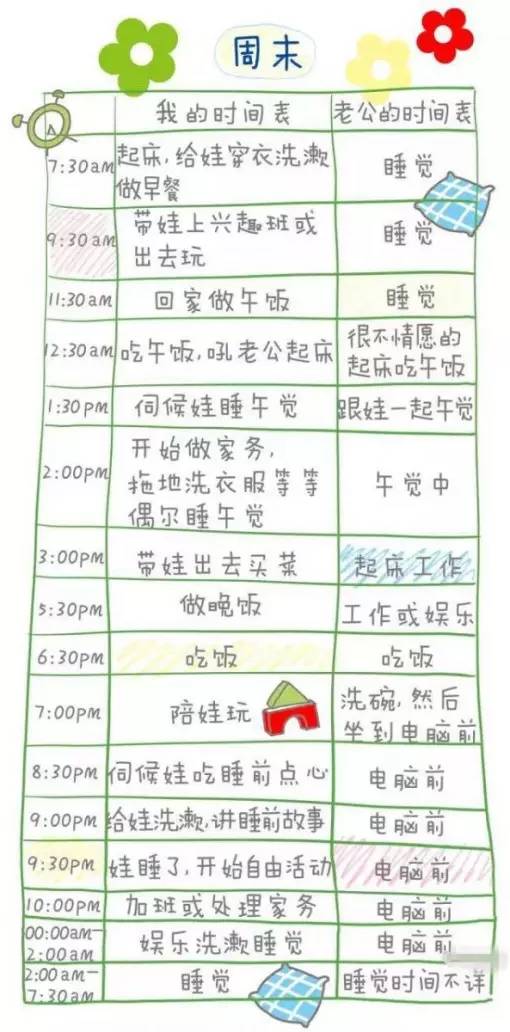 周末
我的时间表 老公的时间表
7:30am 起床,给娃穿衣洗漱 睡觉
做早餐
9:30am 带娃上兴趣班或 睡觉
出去玩
11:30am 回家做午饭 睡觉
12:30am 吃午饭,吼老公起床 很不情愿的
起床吃午饭
1:30pm 伺候娃睡午觉 跟娃一起午觉
2:00pm 开始做家务, 午觉中
拖地洗衣服等等
偶尔睡午觉
3:00pm 带娃出去买菜 起床工作
5:30pm 做晚饭 工作或娱乐
6:30pm 吃饭 吃饭
7:00pm 陪娃玩 洗碗,然后
坐到电脑前
8:30pm 伺候娃吃睡前点心 电脑前
9:00pm 给娃洗漱,讲睡前故事 电脑前
9:30pm 娃睡了,开始自由活动 电脑前
10:00pm 加班或处理家务 电脑前
00:00am-
2:00am 娱乐洗漱睡觉 电脑前
2:00am-
7:30am 睡觉 睡觉时间不详